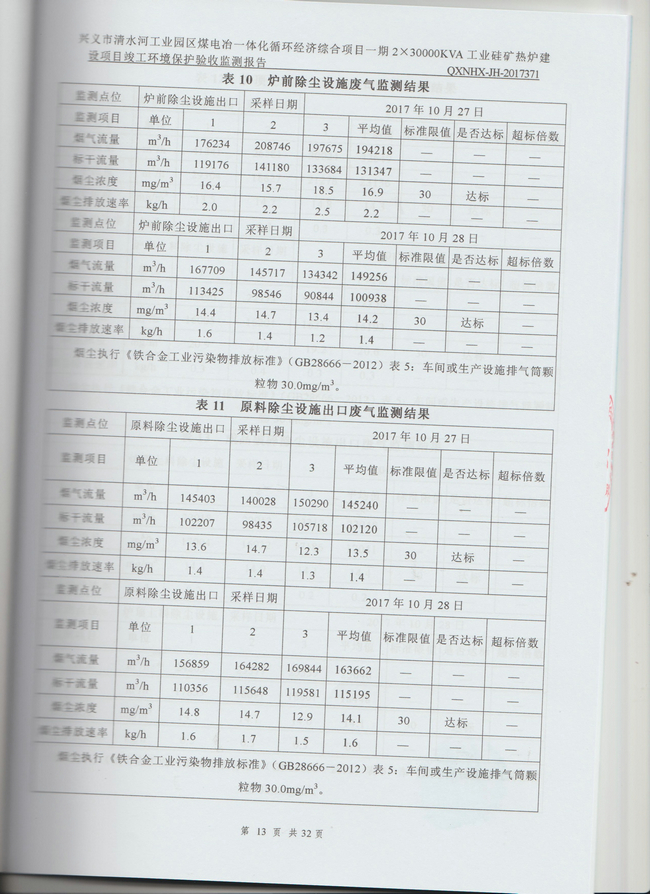 兴义市清水河工业园区煤电冶一体化循环经济综合项目一期 2×30000KVA 工业硅矿热炉建
设项目竣工环境保护验收监测报告 QXNHX-JH-2017371
表 10 炉前除尘设施废气监测结果
监测点位 炉前除尘设施出口 采样日期 2017 年 10 月 27 日
监测项目 单位 1 2 3 平均值 标准限值 是否达标 超标倍数
烟气流量 m³/h 176234 208746 197675 194218 — — —
标干流量 m³/h 119176 141180 133684 131347 — — —
烟尘浓度 mg/m³ 16.4 15.7 18.5 16.9 30 达标 —
烟尘排放速率 kg/h 2.0 2.2 2.5 2.2 — — —
监测点位 炉前除尘设施出口 采样日期 2017 年 10 月 28 日
监测项目 单位 1 2 3 平均值 标准限值 是否达标 超标倍数
烟气流量 m³/h 167709 145717 134342 149256 — — —
标干流量 m³/h 113425 98546 90844 100938 — — —
烟尘浓度 mg/m³ 14.4 14.7 13.4 14.2 30 达标 —
烟尘排放速率 kg/h 1.6 1.4 1.2 1.4 — — —
烟尘执行《铁合金工业污染物排放标准》（GB28666－2012）表 5：车间或生产设施排气筒颗
粒物 30.0mg/m³。
表 11 原料除尘设施出口废气监测结果
监测点位 原料除尘设施出口 采样日期 2017 年 10 月 27 日
监测项目 单位 1 2 3 平均值 标准限值 是否达标 超标倍数
烟气流量 m³/h 145403 140028 150290 145240 — — —
标干流量 m³/h 102207 98435 105718 102120 — — —
烟尘浓度 mg/m³ 13.6 14.7 12.3 13.5 30 达标 —
烟尘排放速率 kg/h 1.4 1.4 1.3 1.4 — — —
监测点位 原料除尘设施出口 采样日期 2017 年 10 月 28 日
监测项目 单位 1 2 3 平均值 标准限值 是否达标 超标倍数
烟气流量 m³/h 156859 164282 169844 163662 — — —
标干流量 m³/h 110356 115648 119581 115195 — — —
烟尘浓度 mg/m³ 14.8 14.7 12.9 14.1 30 达标 —
烟尘排放速率 kg/h 1.6 1.7 1.5 1.6 — — —
烟尘执行《铁合金工业污染物排放标准》（GB28666－2012）表 5：车间或生产设施排气筒颗
粒物 30.0mg/m³。
第 13 页 共 32 页